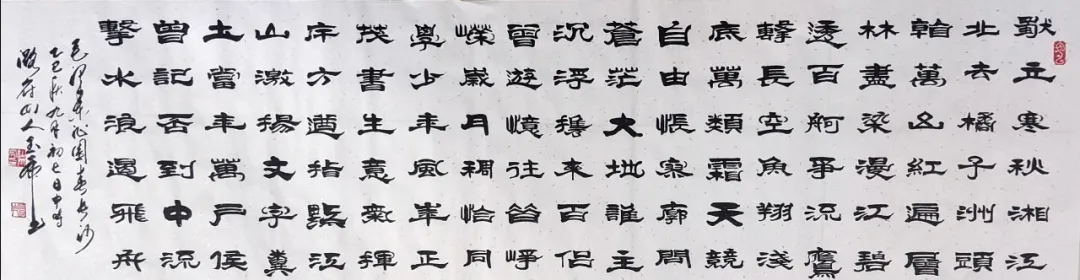 獨立寒秋湘江
北去橘子洲頭
看萬山紅遍層
林盡染漫江碧
透百舸爭流鷹
擊長空魚翔淺
底萬類霜天競
自由悵寥廓問
蒼茫大地誰主
沉浮攜來百侶
曾遊憶往昔崢
嶸歲月稠恰同
學少年風華正
茂書生意氣揮
斥方遒指點江
山激揚文字糞
土當年萬戶侯
曾記否到中流
擊水浪遏飛舟
毛澤東沁園春長沙
乙巳秋九月初七日中午
山人